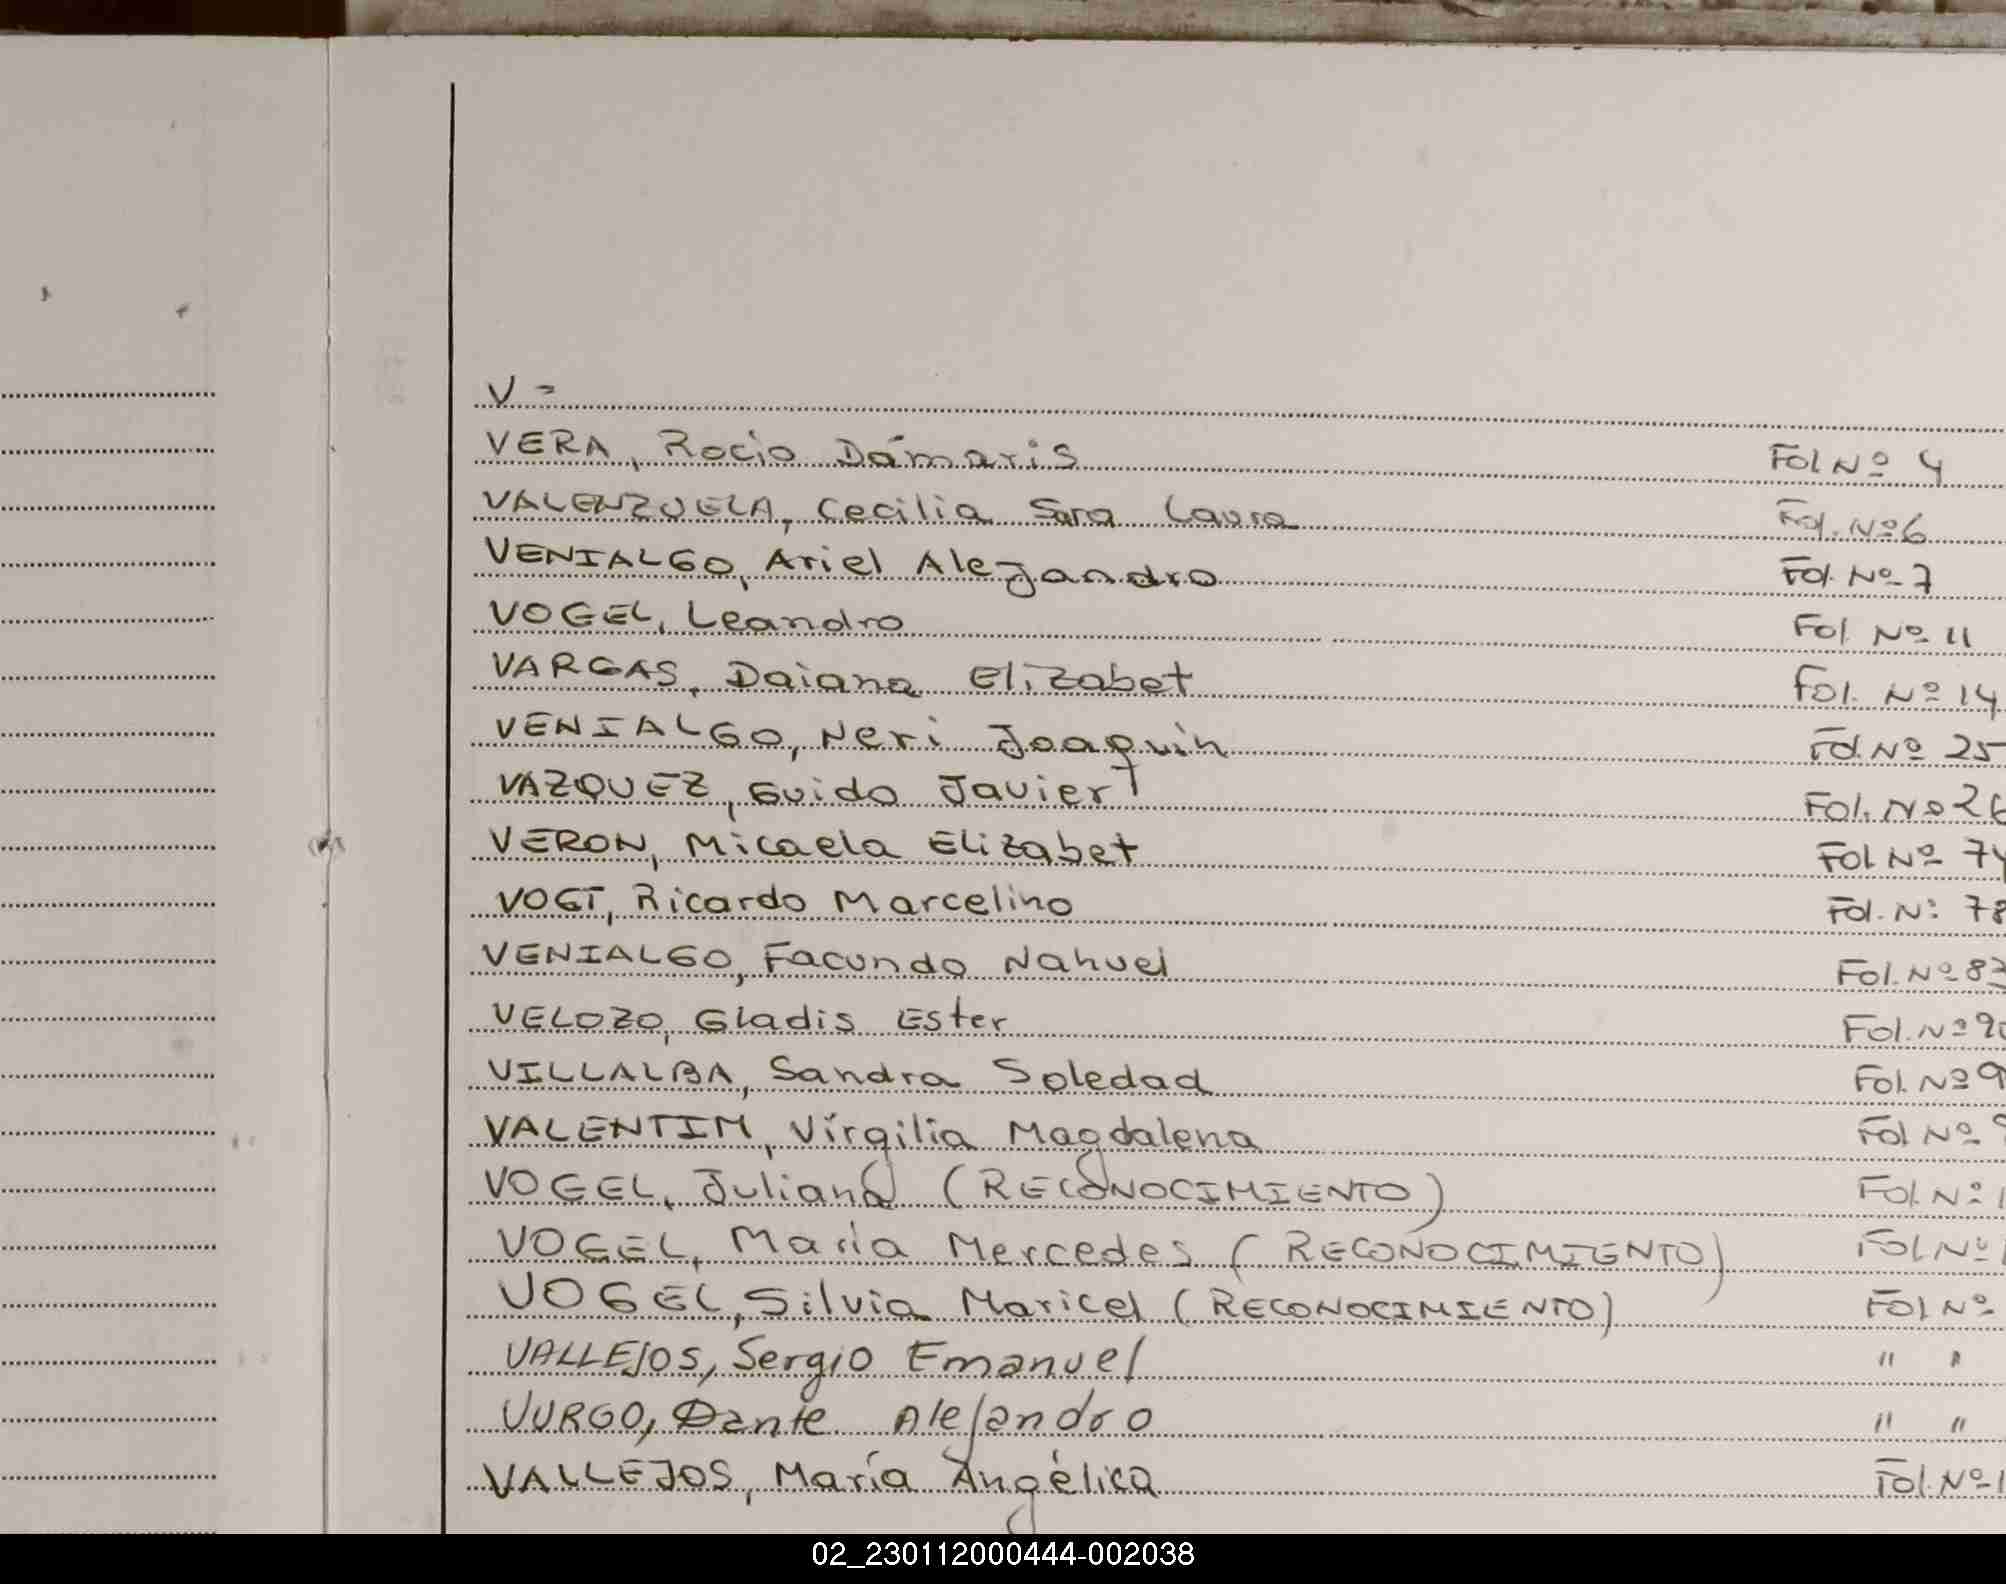 V =
VERA, Rocio Dámaris Fol Nº 4
VALENZUELA, Cecilia Sara Laura Fol. Nº 6
VENIALGO, Ariel Alejandro Fol. Nº 7
VOGEL, Leandro Fol. Nº 11
VARGAS, Daiana Elizabet Fol. Nº 14
VENIALGO, Neri Joaquin Fol. Nº 25
VAZQUEZ, Guido Javier Fol. Nº 26
VERON, Micaela Elizabet Fol Nº 74
VOGT, Ricardo Marcelino Fol. Nº 78
VENIALGO, Facundo Nahuel Fol. Nº 83
VELOZO, Gladis Ester Fol. Nº
VILLALBA, Sandra Soledad Fol. Nº 9
VALENTIM, Virgilia Magdalena Fol Nº
VOGEL, Juliana (RECONOCIMIENTO) Fol. Nº 1
VOGEL, María Mercedes (RECONOCIMIENTO) Fol. Nº
VOGEL, Silvia Maricel (RECONOCIMIENTO) Fol. Nº
VALLEJOS, Sergio Emanuel " "
VURGO, Dante Alejandro " "
VALLEJOS, María Angélica Fol. Nº 1
02_230112000444-002038